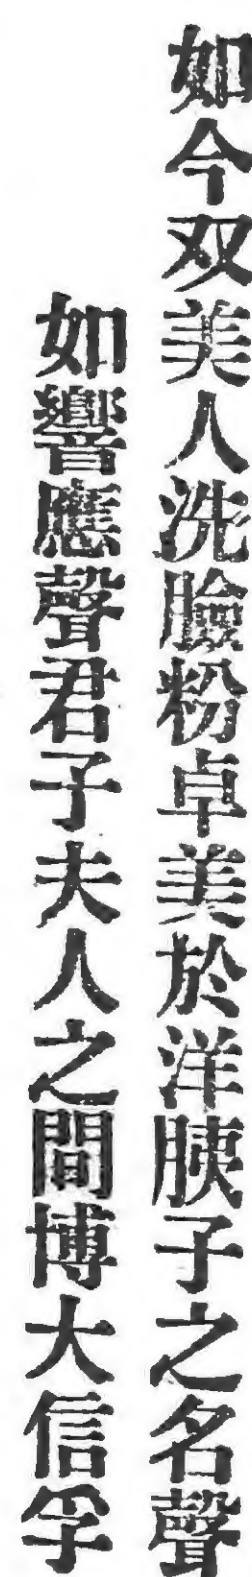 如今双美人洗臉粉卓美於洋胰子之名聲
如響應聲君子夫人之間博大信孚